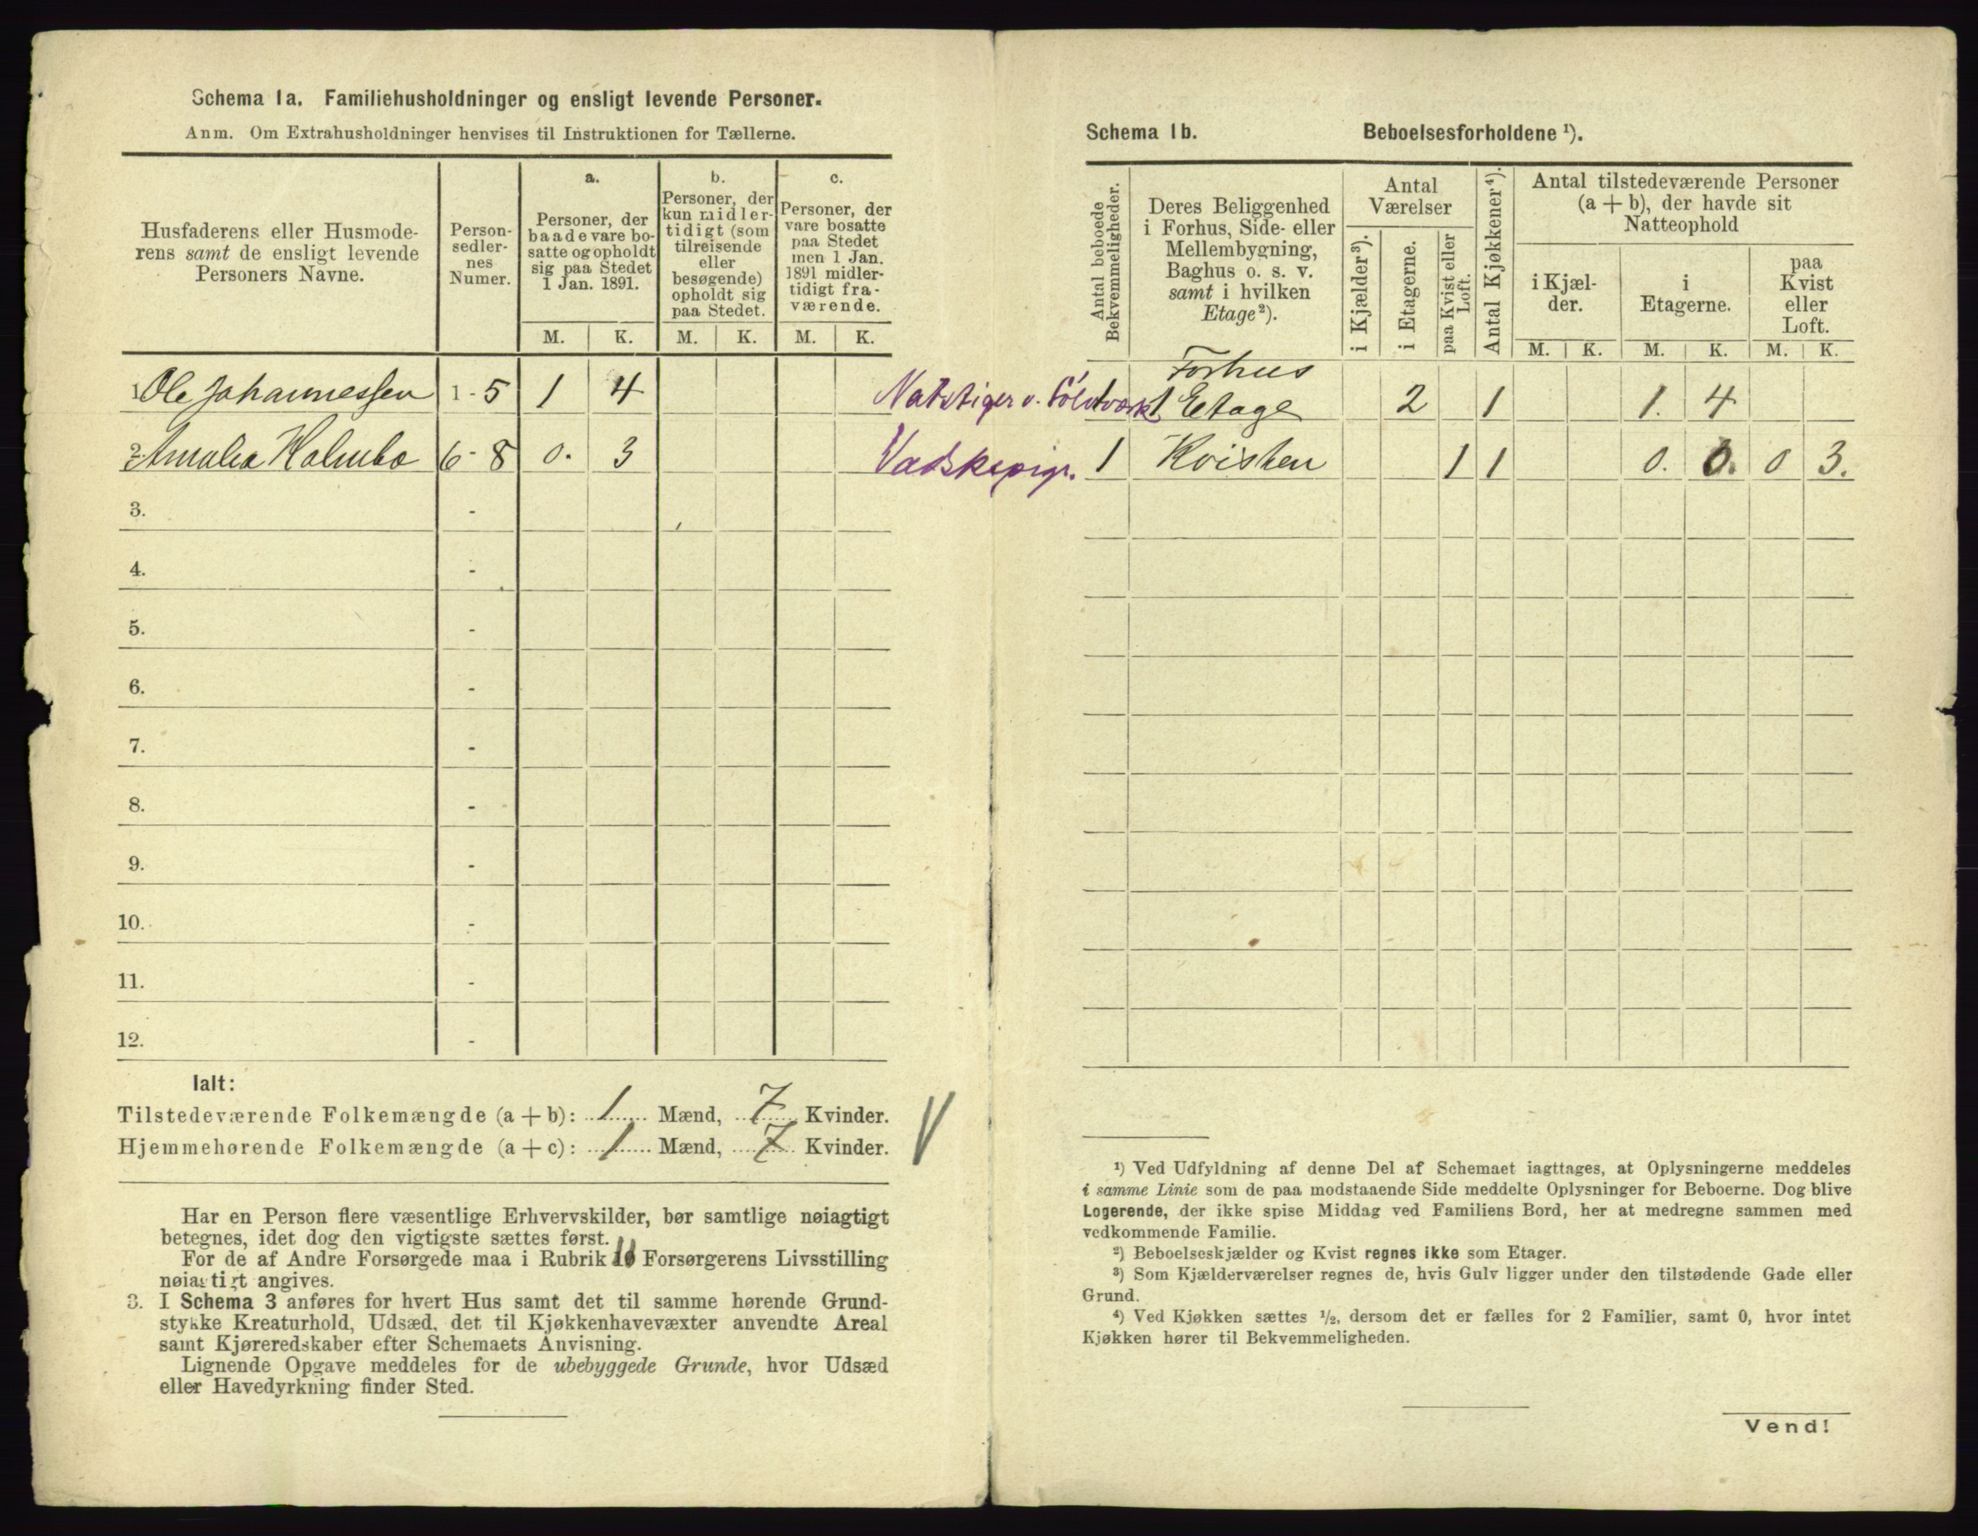 Schema 1a. Familiehusholdninger og ensligt levende Personer.
Anm. Om Extrahusholdninger henvises til Instruktionen for Tællerne.
Husfaderens eller Husmode-
rens samt de ensligt levende
Personers Navne.
Person-
sedler-
nes
Numer.
a.
Personer, der
baade vare bo-
satte og opholdt
sig paa Stedet
1 Jan. 1891.
b.
Personer, der
kun midler-
tidigt (som
tilreisende
eller
besøgende)
opholdt sig
paa Stedet.
c.
Personer, der
vare bosatte
paa Stedet
men 1 Jan.
1891 midler-
tidigt fra-
værende.
M. K. M. K. M. K.
1 Ole Johannessen 1-5 1 4
2. Amalia Holmbo 6-8 0. 3
3. -
4. -
5. -
6. -
7. -
8. -
9. -
10. -
11. -
12. -
Ialt:
Tilstedeværende Folkemængde (a + b): 1 Mænd, 7 Kvinder.
Hjemmehørende Folkemængde (a + c): 1 Mænd, 7 Kvinder.
Har en Person flere væsentlige Erhvervskilder, bør samtlige nøiagtigt
betegnes, idet dog den vigtigste sættes først.
For de af Andre Forsørgede maa i Rubrik 11 Forsørgerens Livsstilling
nøiagtigt angives.
3. I Schema 3 anføres for hvert Hus samt det til samme hørende Grund-
stykke Kreaturhold, Udsæd, det til Kjøkkenhavevæxter anvendte Areal
samt Kjøreredskaber efter Schemaets Anvisning.
Lignende Opgave meddeles for de ubebyggede Grunde, hvor Udsæd
eller Havedyrkning finder Sted.
Schema 1b. Beboelsesforholdene ¹).
Antal beboede
Bekvemmeligheder.
Deres Beliggenhed
i Forhus, Side- eller
Mellembygning,
Baghus o. s. v.
samt i hvilken
Etage²).
Antal
Værelser
i Kjælder³).
i Etagerne.
paa Kvist eller
Loft.
Antal Kjøkkener⁴).
Antal tilstedeværende Personer
(a + b), der havde sit
Natteophold
i Kjæl-
der.
i
Etagerne.
paa
Kvist
eller
Loft.
M. K. M. K. M. K.
Forhus
1 1 Etage 2 1 1. 4
Vadskepige. 1 Kvisten 1 1 0. 0. 0 3.
¹) Ved Udfyldning af denne Del af Schemaet iagttages, at Oplysningerne meddeles
i samme Linie som de paa modstaaende Side meddelte Oplysninger for Beboerne. Dog blive
Logerende, der ikke spise Middag ved Familiens Bord, her at medregne sammen med
vedkommende Familie.
²) Beboelseskjælder og Kvist regnes ikke som Etager.
³) Som Kjælderværelser regnes de, hvis Gulv ligger under den tilstødende Gade eller
Grund.
⁴) Ved Kjøkken sættes ½, dersom det er fælles for 2 Familier, samt 0, hvor intet
Kjøkken hører til Bekvemmeligheden.
Vend!